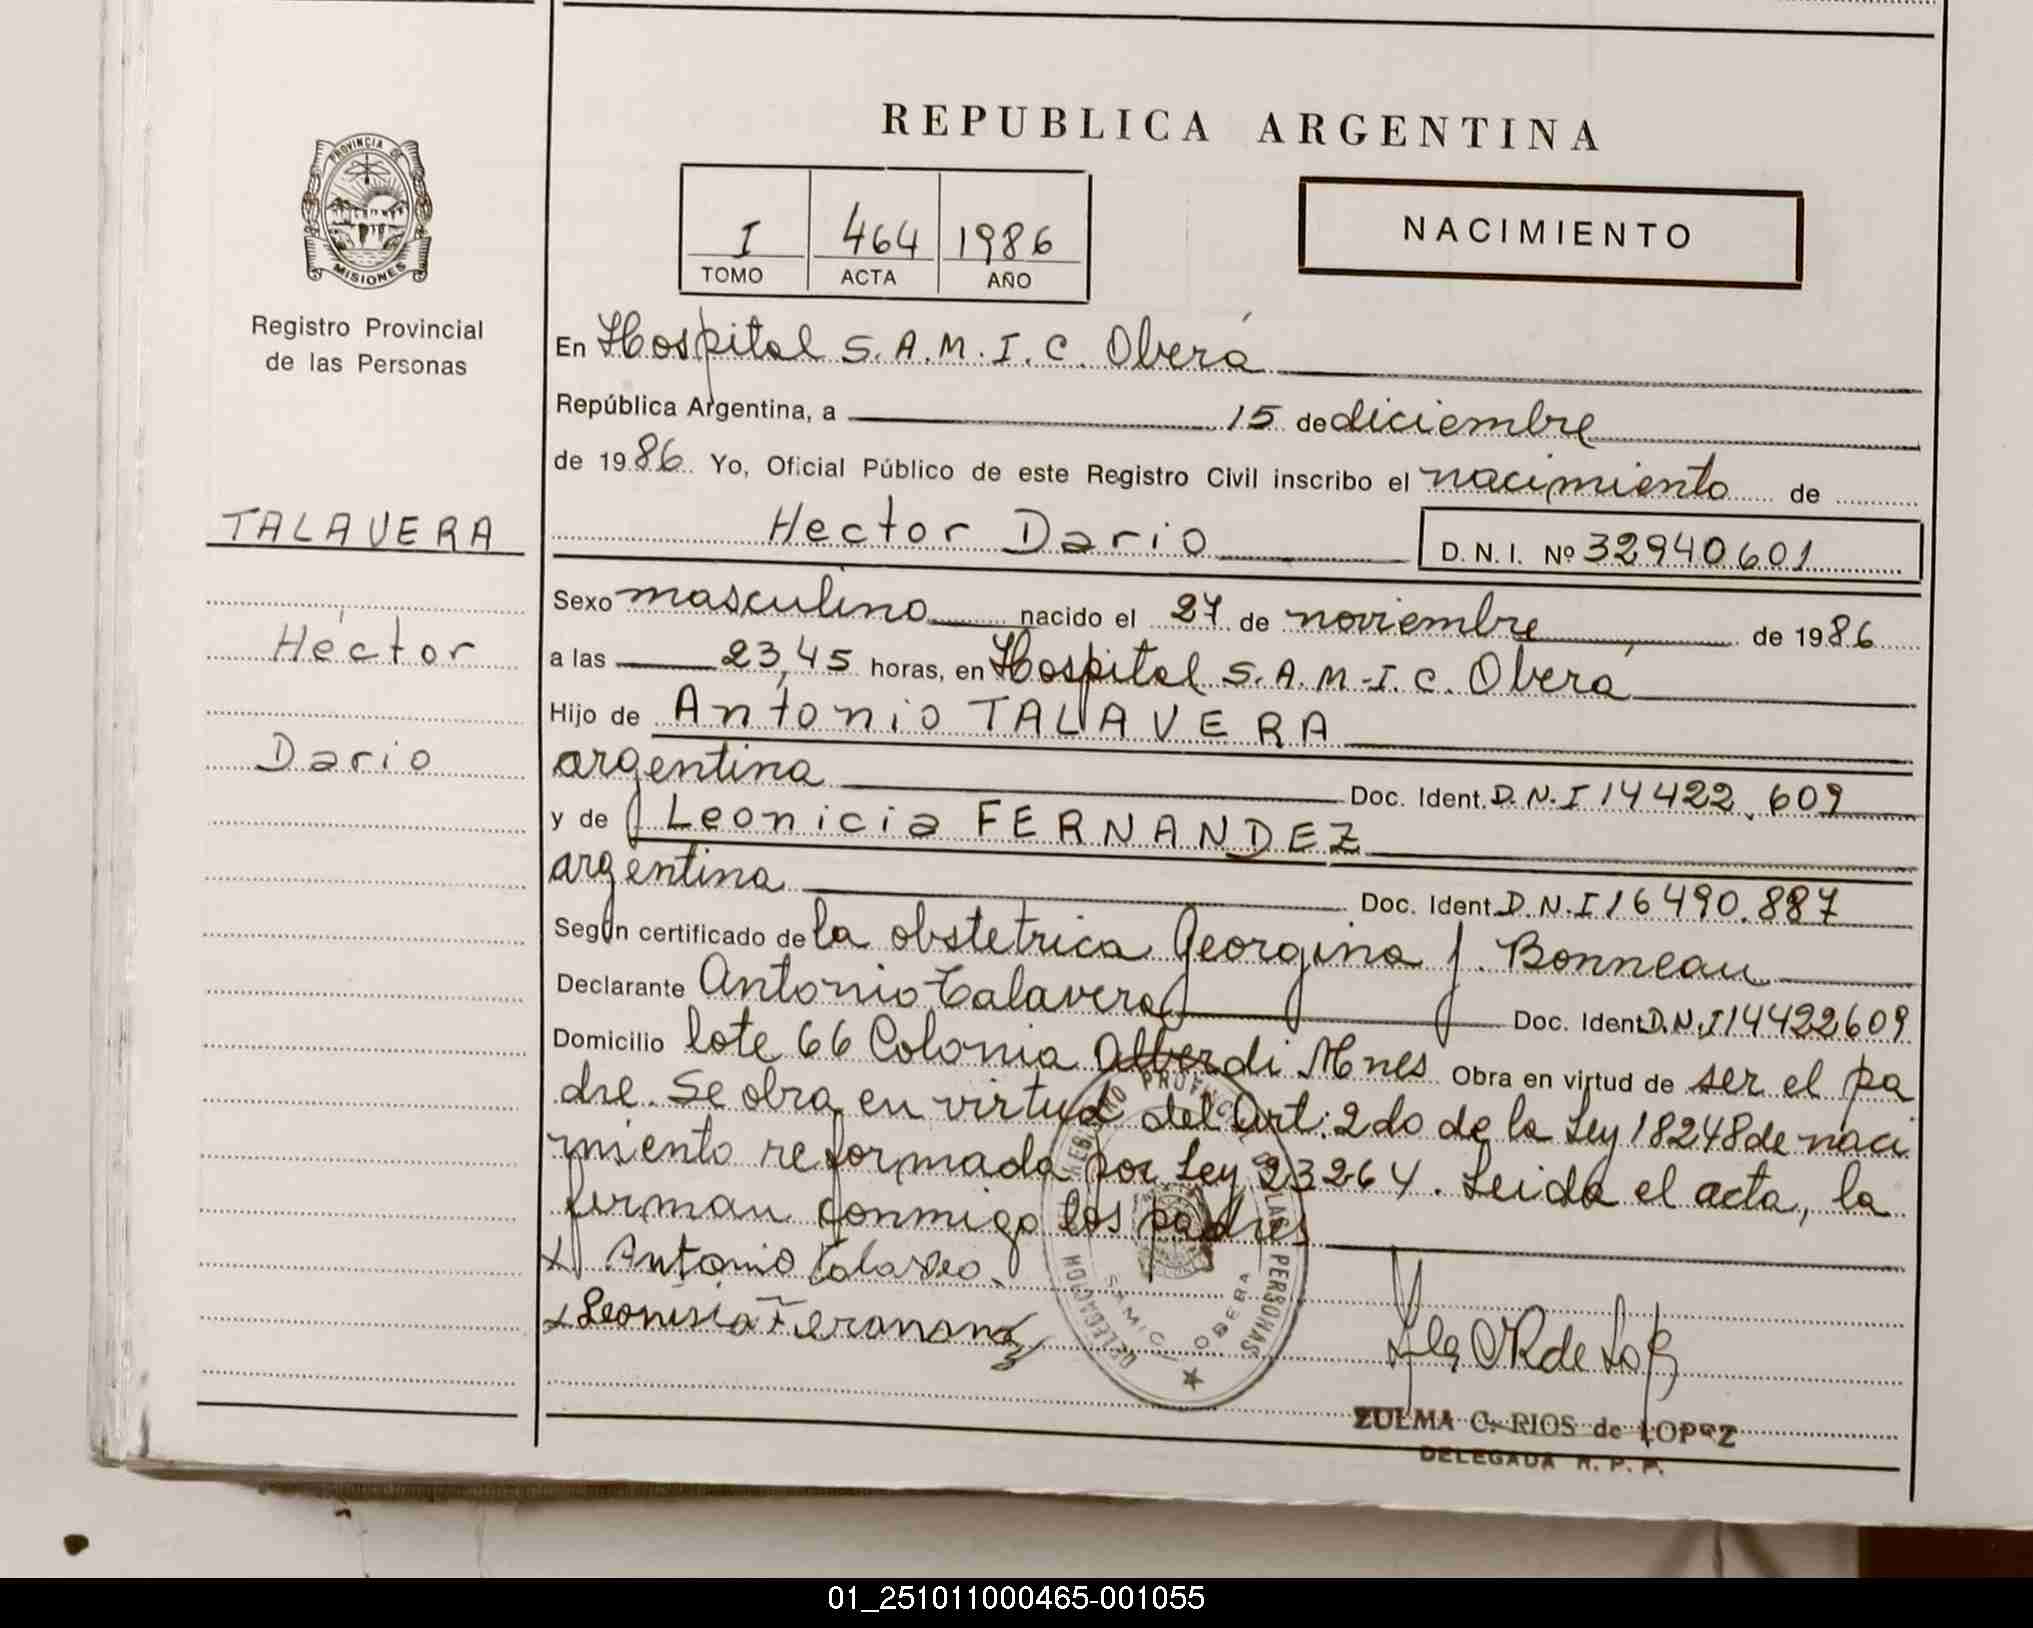 REPUBLICA ARGENTINA
PROVINCIA DE
MISIONES
Registro Provincial
de las Personas
I 464 1986
TOMO ACTA AÑO
NACIMIENTO
En Hospital S.A.M.I.C. Oberá
República Argentina, a 15 de diciembre
de 1986 Yo, Oficial Público de este Registro Civil inscribo el nacimiento de
Hector Dario D. N. I. Nº 32940601
TALAVERA
Héctor
Dario
Sexo masculino nacido el 27 de noviembre de 1986
a las 23,45 horas, en Hospital S.A.M.I.C. Oberá
Hijo de Antonio TALAVERA
argentina Doc. Ident. D.N.I 14422.609
y de Leonicia FERNANDEZ
argentina Doc. Ident. D.N.I 16490.887
Según certificado de la obstetrica Georgina J. Bonneau
Declarante Antonio Talavera Doc. Ident. D.N.I 14422609
Domicilio lote 66 Colonia Alberdi Mnes Obra en virtud de ser el pa
dre. Se obra en virtud del Art: 2do de la Ley 18248 de naci
miento reformada por Ley 23264. Leida el acta, la
firman conmigo los padres
Antonio Talavera
Leonisia Fernandez
DELEGACION SAMIC OBERA PERSONAS
ZULMA C. RIOS de LOPEZ
DELEGADA R. P. P.
01_251011000465-001055